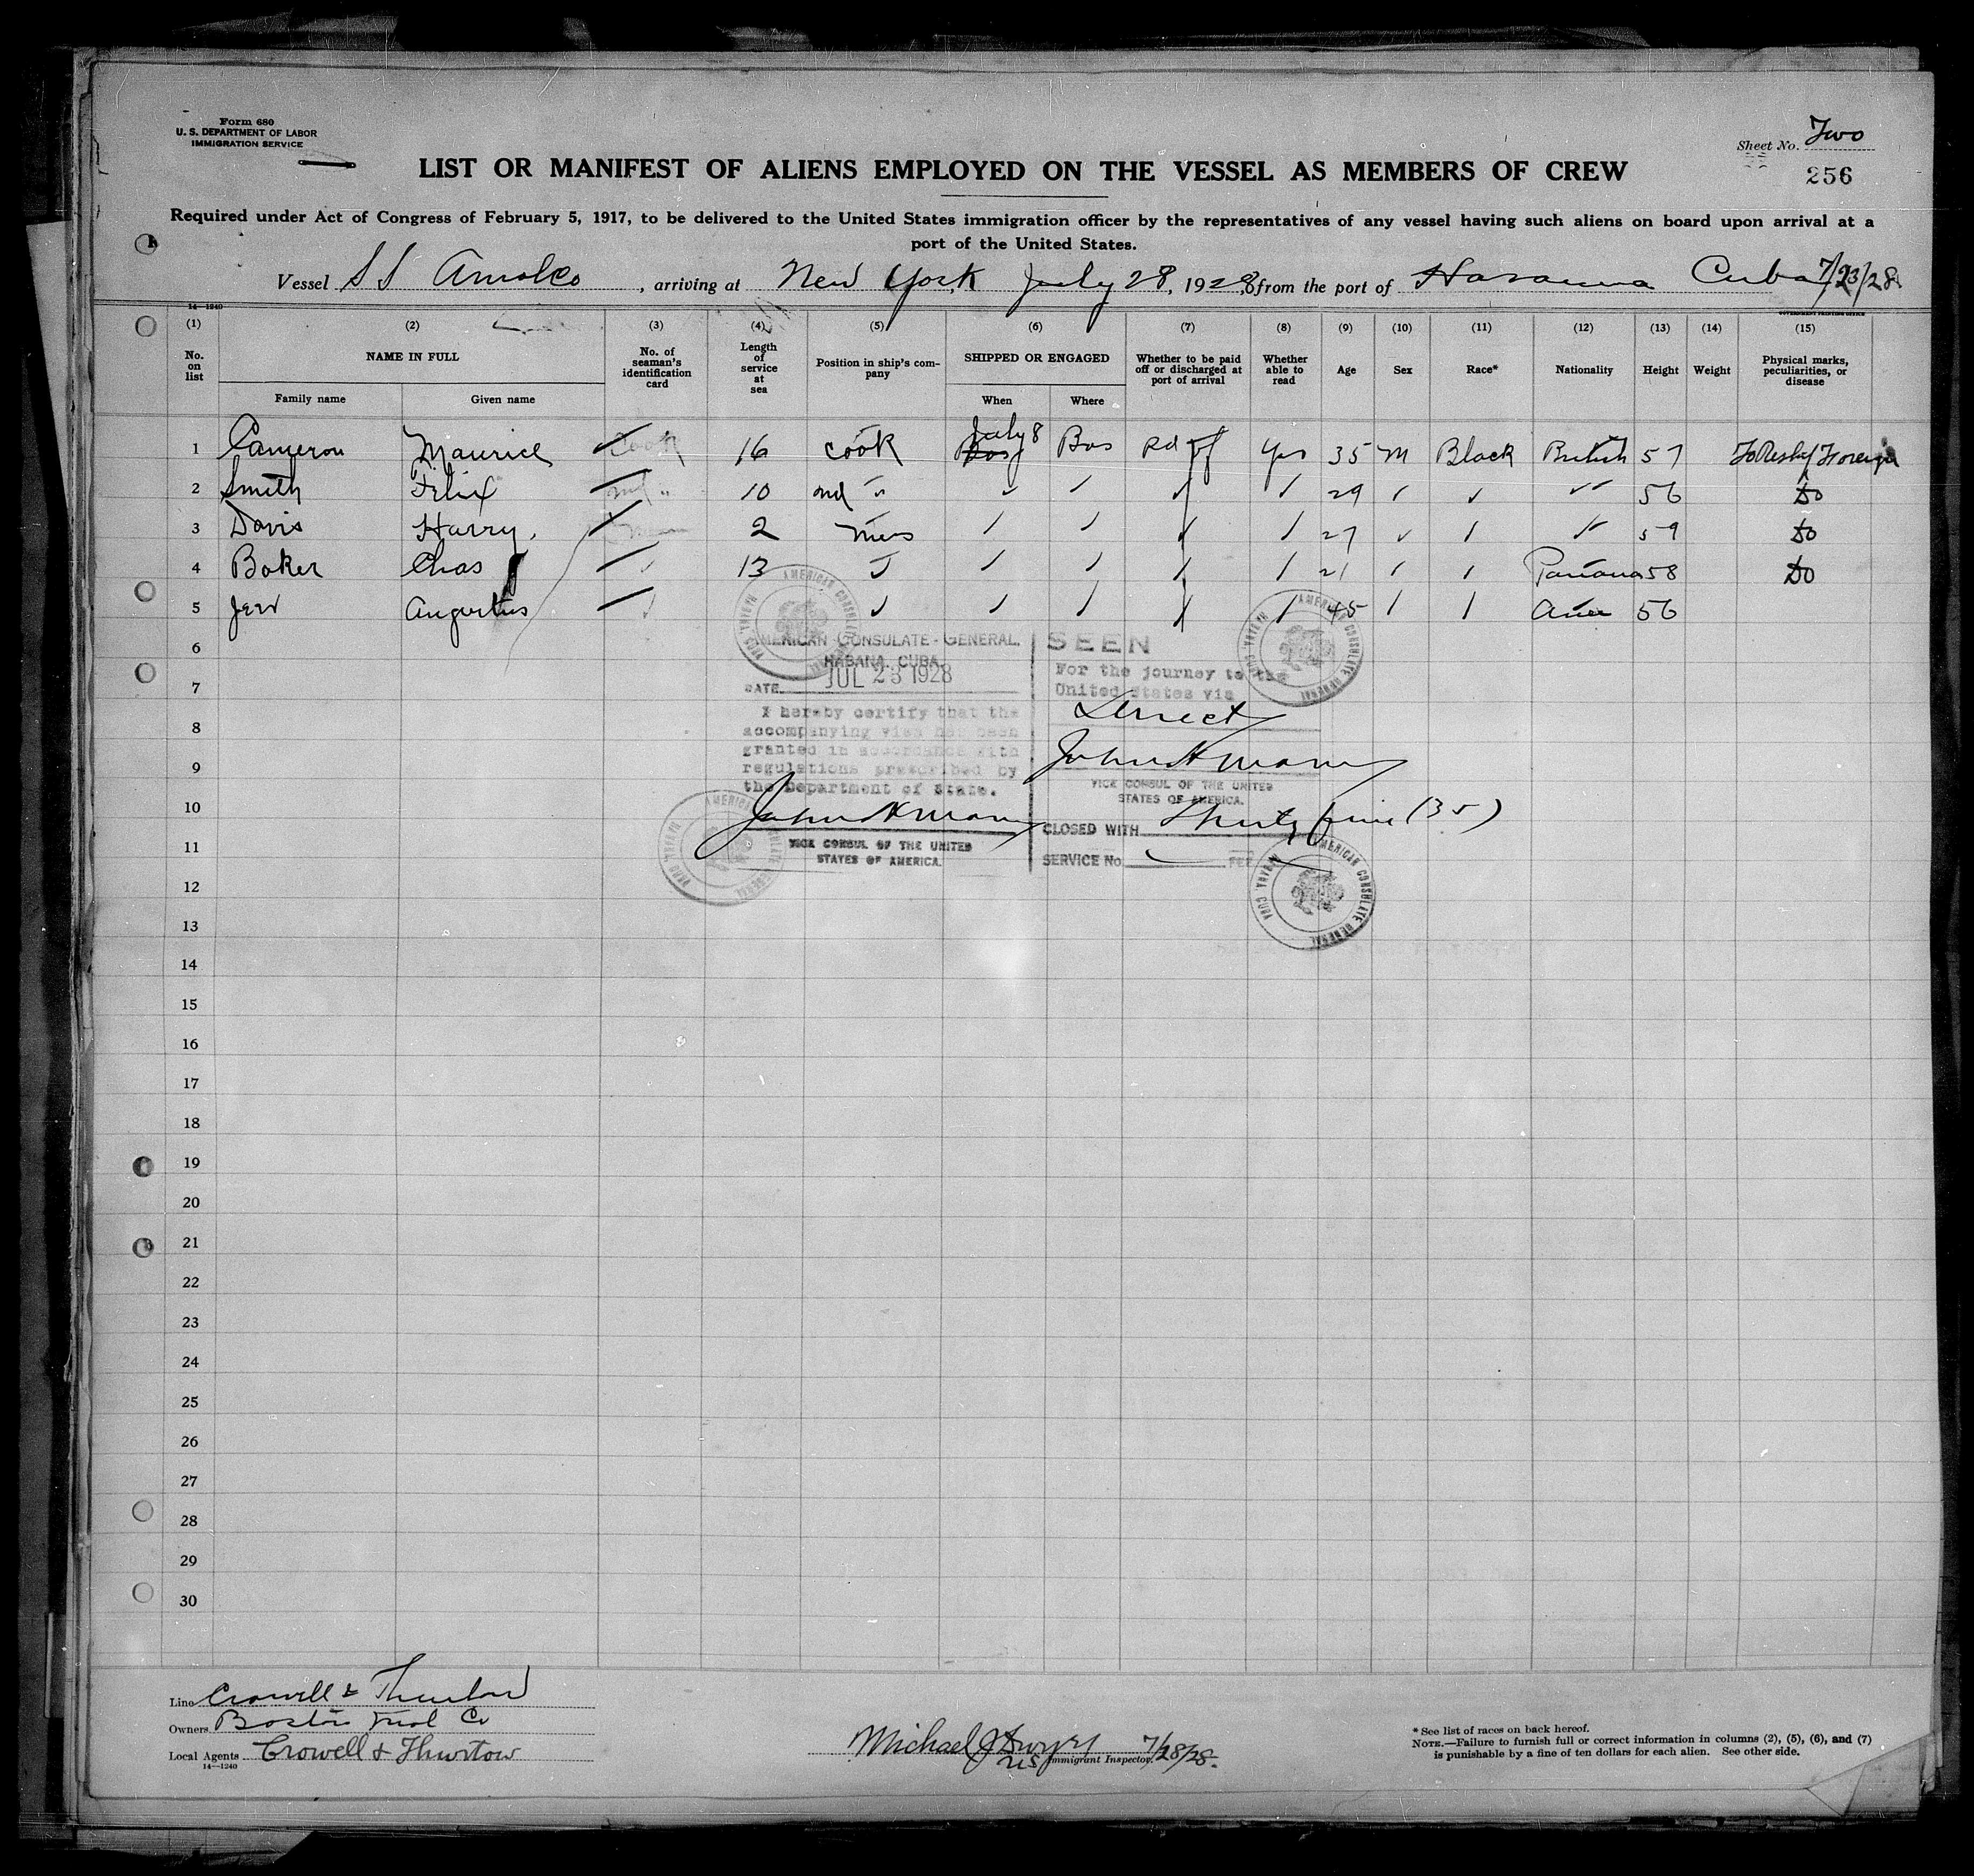 Form 680
U. S. DEPARTMENT OF LABOR
IMMIGRATION SERVICE
Sheet No. Two
256
LIST OR MANIFEST OF ALIENS EMPLOYED ON THE VESSEL AS MEMBERS OF CREW
Required under Act of Congress of February 5, 1917, to be delivered to the United States immigration officer by the representatives of any vessel having such aliens on board upon arrival at a
port of the United States.
Vessel SS, arriving at New York, July 28, 1928, from the port of Havana Cuba 7/23/28
14—1240
GOVERNMENT PRINTING OFFICE
(1) (2) (3) (4) (5) (6) (7) (8) (9) (10) (11) (12) (13) (14) (15)
No. on list
NAME IN FULL
Family name
Given name
No. of seaman's identification card
Length of service at sea
Position in ship's company
SHIPPED OR ENGAGED
When
Where
Whether to be paid off or discharged at port of arrival
Whether able to read
Age
Sex
Race*
Nationality
Height
Weight
Physical marks, peculiarities, or disease
1 Cameron Maurice Cook 16 cook July 8 Bos Yes 35 M Black British 57 To Reship Foreign
2 Smith Felix 2nd " 10 2nd " ✓ ✓ ✓ ✓ 29 ✓ ✓ ✓ 56 Do
3 Davis Harry. 2 mess ✓ ✓ ✓ ✓ 27 ✓ ✓ ✓ 59 Do
4 Baker Chas ✓ 13 ✓ ✓ ✓ ✓ ✓ 21 ✓ ✓ Panama 58 Do
5 Augustus ✓ ✓ ✓ ✓ ✓ ✓ 45 ✓ ✓ 56
6
7
8
9
10
11
12
13
14
15
16
17
18
19
20
21
22
23
24
25
26
27
28
29
30
AMERICAN CONSULATE GENERAL
HABANA, CUBA
AMERICAN CONSULATE-GENERAL.
HABANA, CUBA.
DATE JUL 23 1928
I hereby certify that the
accompanying visa has been
granted in accordance with
regulations prescribed by
the Department of State.
VICE CONSUL OF THE UNITED
STATES OF AMERICA.
AMERICAN CONSULATE GENERAL
HABANA, CUBA
SEEN
For the journey to the
United States via
Direct
VICE CONSUL OF THE UNITED
STATES OF AMERICA.
CLOSED WITH Thirty five (35)
SERVICE No. FEE
AMERICAN CONSULATE GENERAL
HABANA, CUBA
AMERICAN CONSULATE GENERAL
HABANA, CUBA
Line Crowell & Thurlow
Owners Boston
Local Agents Crowell & Thurlow
14—1240
Michael J Dwyer 7/28/28.
US Immigrant Inspector.
* See list of races on back hereof.
NOTE.—Failure to furnish full or correct information in columns (2), (5), (6), and (7)
is punishable by a fine of ten dollars for each alien. See other side.